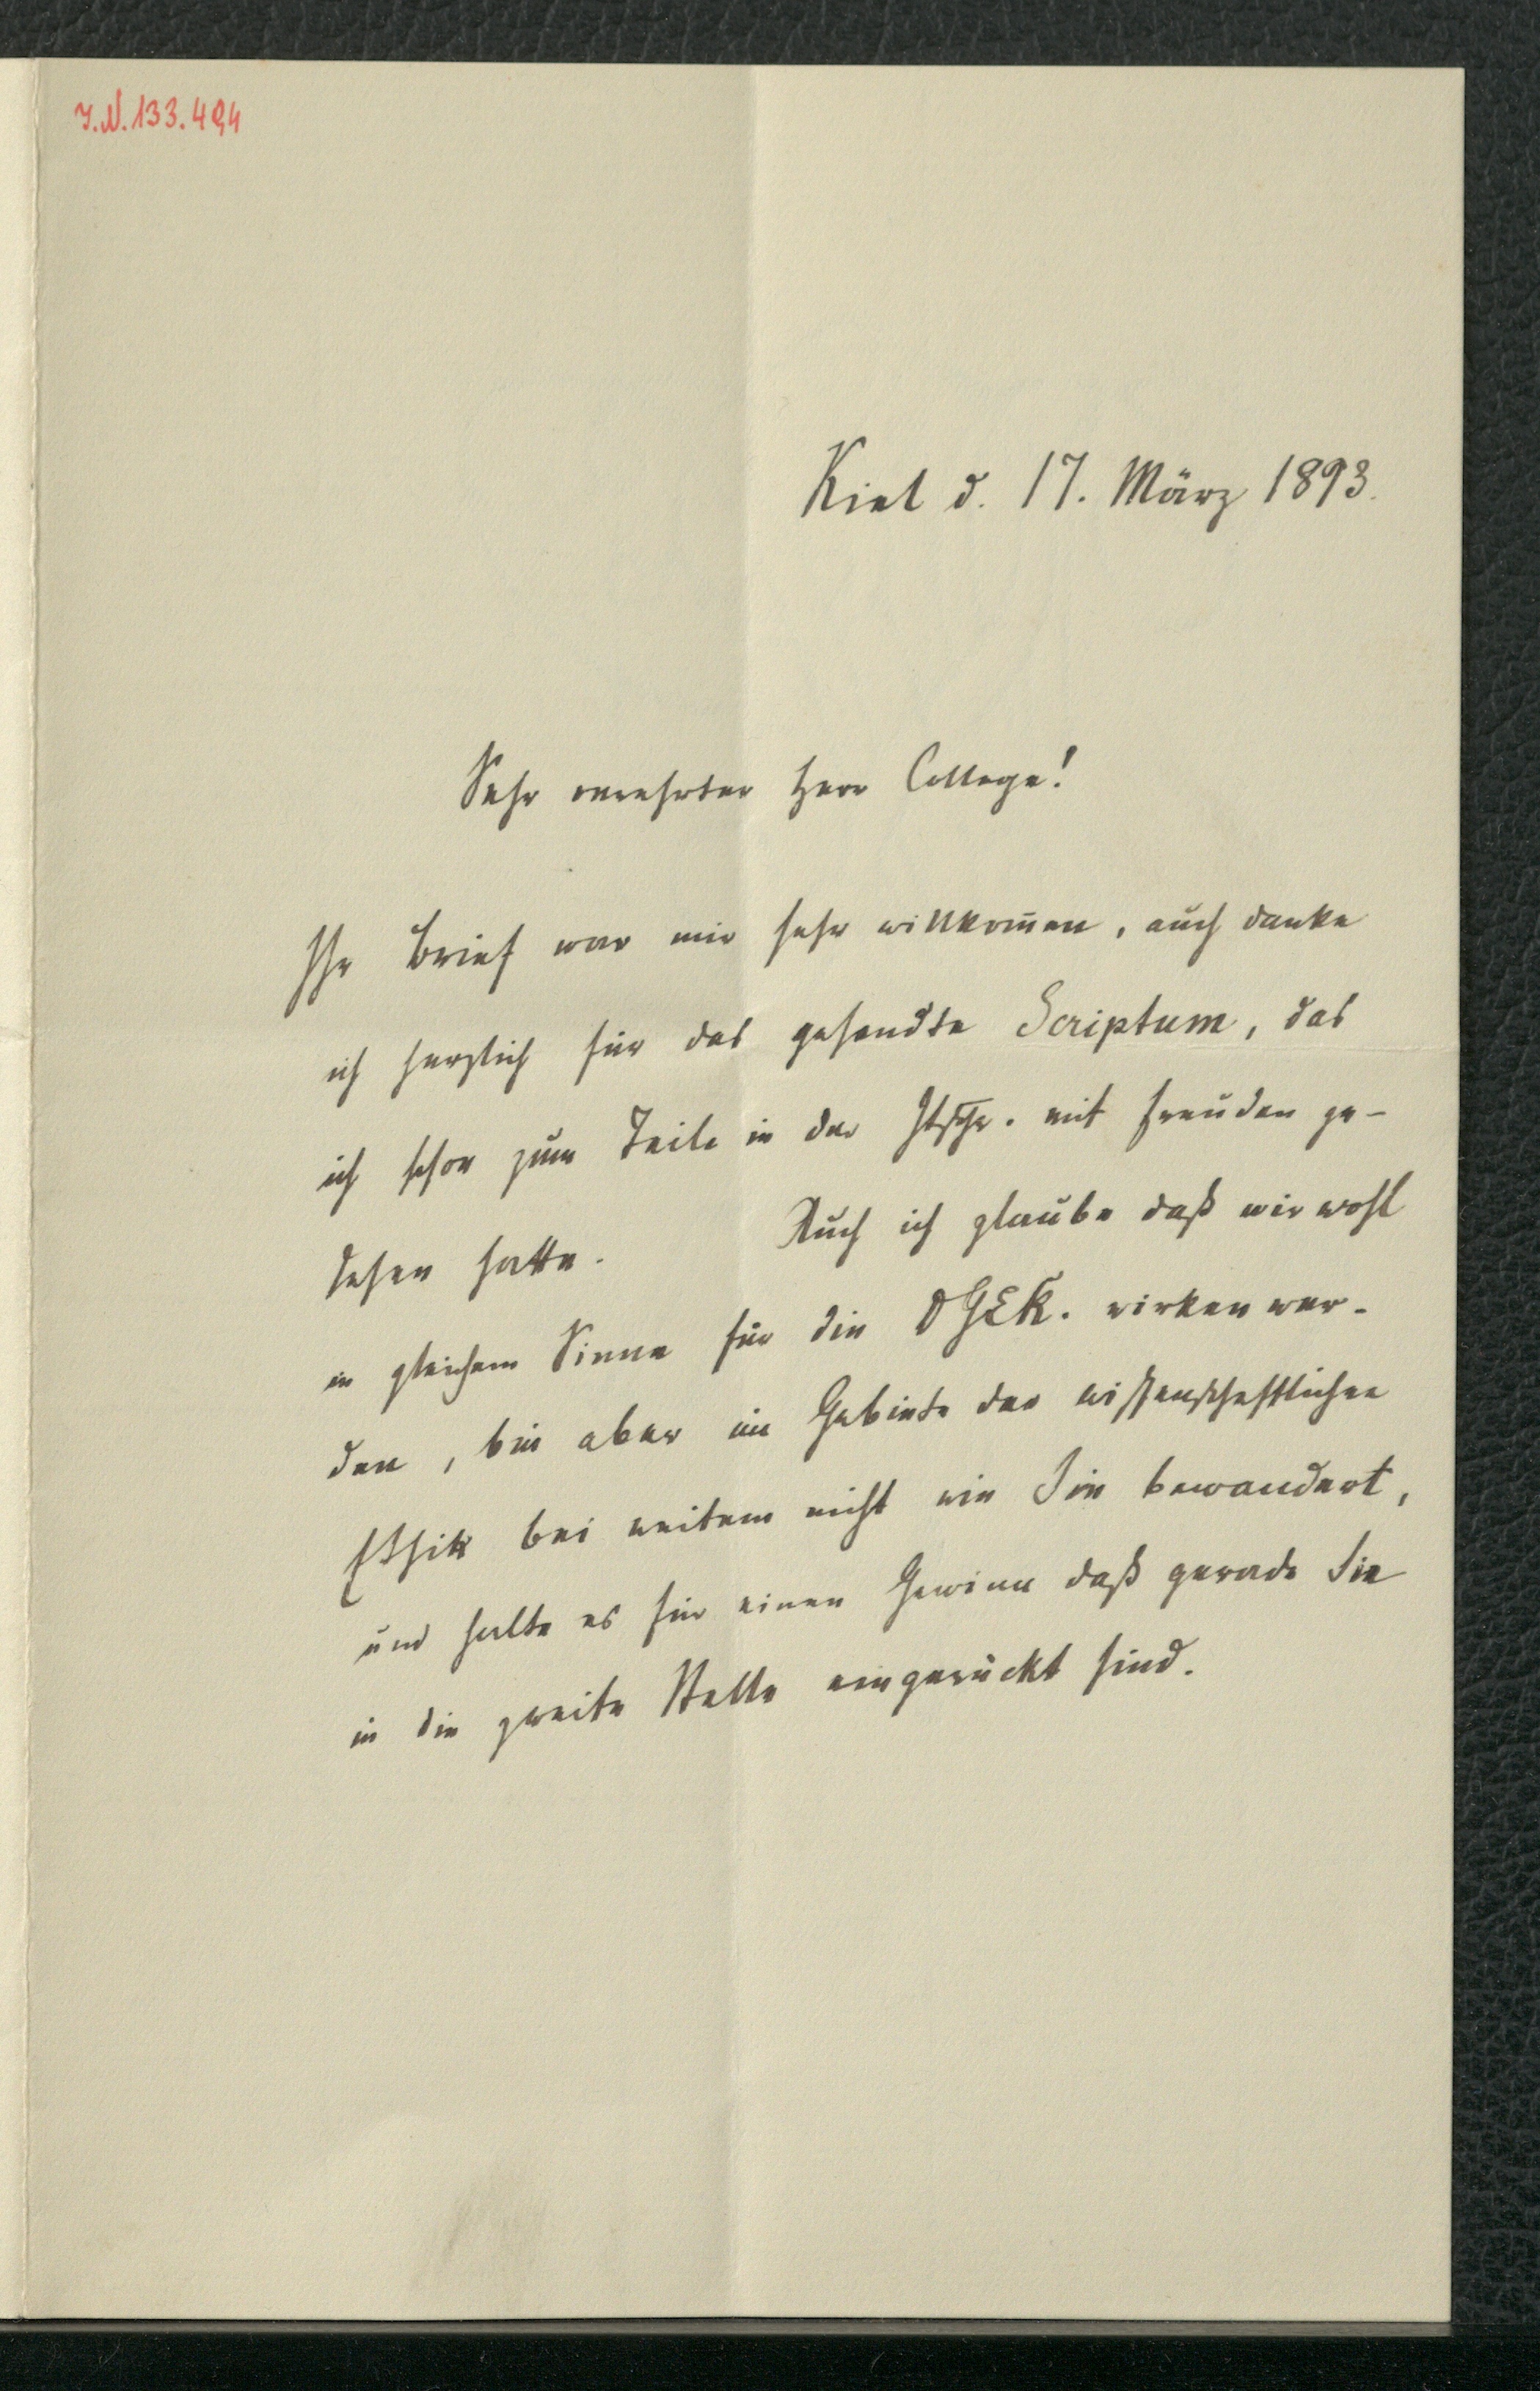 I.N. 133.494
Kiel d. 17. März 1893.
Sehr verehrter Herr College!
Ihr Brief war mir sehr willkom̄en, auch danke
ich herzlich für das gesandte Scriptum, das
ich schon zum Teile in der Ztschr. mit Freuden ge-
lesen hatte. Auch ich glaube daß wir wohl
in gleichem Sinne für die DGEK. wirken wer-
den, bin aber im Gebiete der wissenschaftlichen
Ethik bei weitem nicht wie Sie bewandert,
und halte es für einen Gewinn daß gerade Sie
in die zweite Stelle eingerückt sind.